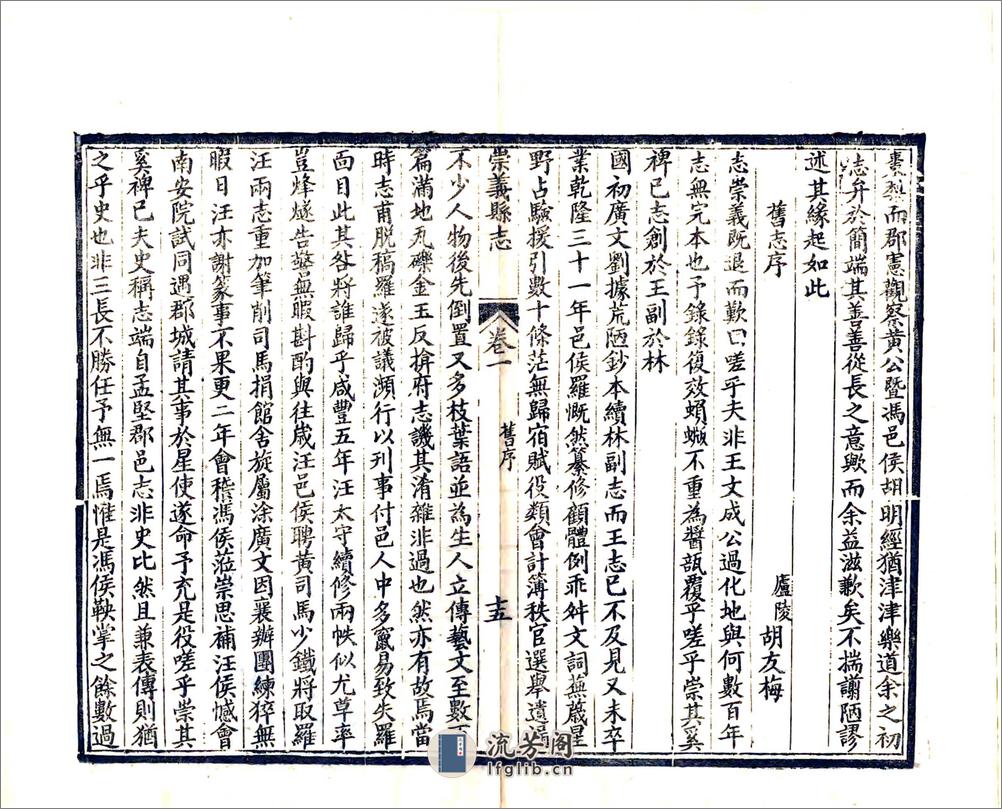 棗梨而郡憲觀察黃公暨馮邑侯胡明經猶津津樂道余之初
志弁於簡端其善善從長之意歟而余益滋歉矣不揣謭陋謬
述其緣起如此
舊志序
廬陵胡友梅
志崇義既退而歎曰嗟乎夫非王文成公過化地與何數百年
志無完本也予錄錄復效蝜蝂不重為醬瓿覆乎嗟乎崇其奚
裨已志創於王副於林
國初廣文劉據荒陋鈔本續林副志而王志已不及見又未卒
業乾隆三十一年邑侯羅慨然纂修顧體例乖舛文詞蕪薉星
野占驗援引數十條茫無歸宿賦役類會計簿秩官選舉遺漏
崇義縣志
卷一
舊序
十五
不少人物後先倒置又多枝葉語並為生人立傳藝文至數
篇滿地瓦礫金玉反揜府志譏其淆雜非過也然亦有故焉當
時志甫脫稿羅遂被議瀕行以刊事付邑人中多竄易致失羅
面目此其咎將誰歸乎咸豐五年汪太守續修兩帙似尤草率
豈烽燧告警無暇斟酌與往歲汪邑侯聘黃司馬少鐵將取羅
汪兩志重加筆削司馬捐館舍旋屬涂廣文因襄辦團練猝無
暇日汪亦謝篆事不果更二年會稽馮侯蒞崇思補汪侯憾會
南安院試同遇郡城請其事於星使遂命予充是役嗟乎崇其
奚裨已夫史稱志端自孟堅郡邑志非史比然且兼表傳則猶
之乎史也非三長不勝任予無一焉惟是馮侯鞅掌之餘數過
流芳閣
lfglib.cn